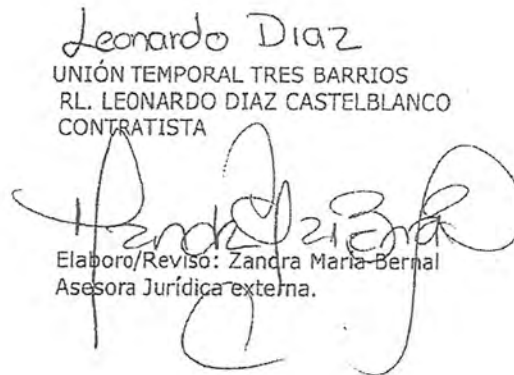 Leonardo Diaz
UNIÓN TEMPORAL TRES BARRIOS
RL. LEONARDO DIAZ CASTELBLANCO
CONTRATISTA
Elaboro/Revisó: Zandra María Bernal
Asesora Jurídica externa.